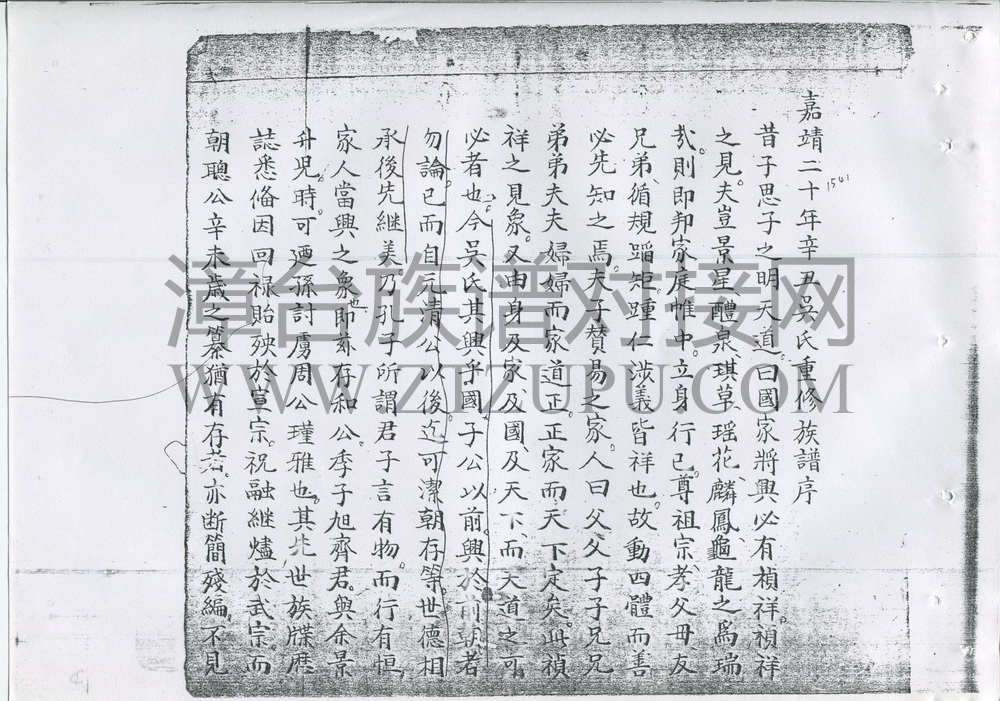 嘉靖二十年辛丑吳氏重修族譜序
1541
昔子思子之明天道曰國家將興必有禎祥禎祥
之見夫豈景星醴泉琪草瑤花麟鳳龜龍之為瑞
哉則即邦家庭帷中立身行己尊祖宗孝父母友
兄弟循規蹈矩踵仁涉義皆祥也故動四體而善
必先知之焉夫子贊易之家人曰父父子子兄兄
弟弟夫夫婦婦而家道正正家而天下定矣此禎
祥之見象又由身及家及國及天下而天道之可
必者也今吳氏其興乎國子公以前興於前朝者
勿論已而自元清公以後迄可潔朝存等世德相
承後先繼美乃孔子所謂君子言有物而行有恒
家人當興之象即亦存和公季子旭齊君與余景
升児時可廼孫討虜周公瑾雅也其先世族牒歷
誌悉俻因回禄貽殃於宣宗祝融繼燼於武宗而
朝聰公辛未歲之纂猶有存者亦断簡殘編不見
漳台族谱对接网
WWW.ZIZUPU.COM